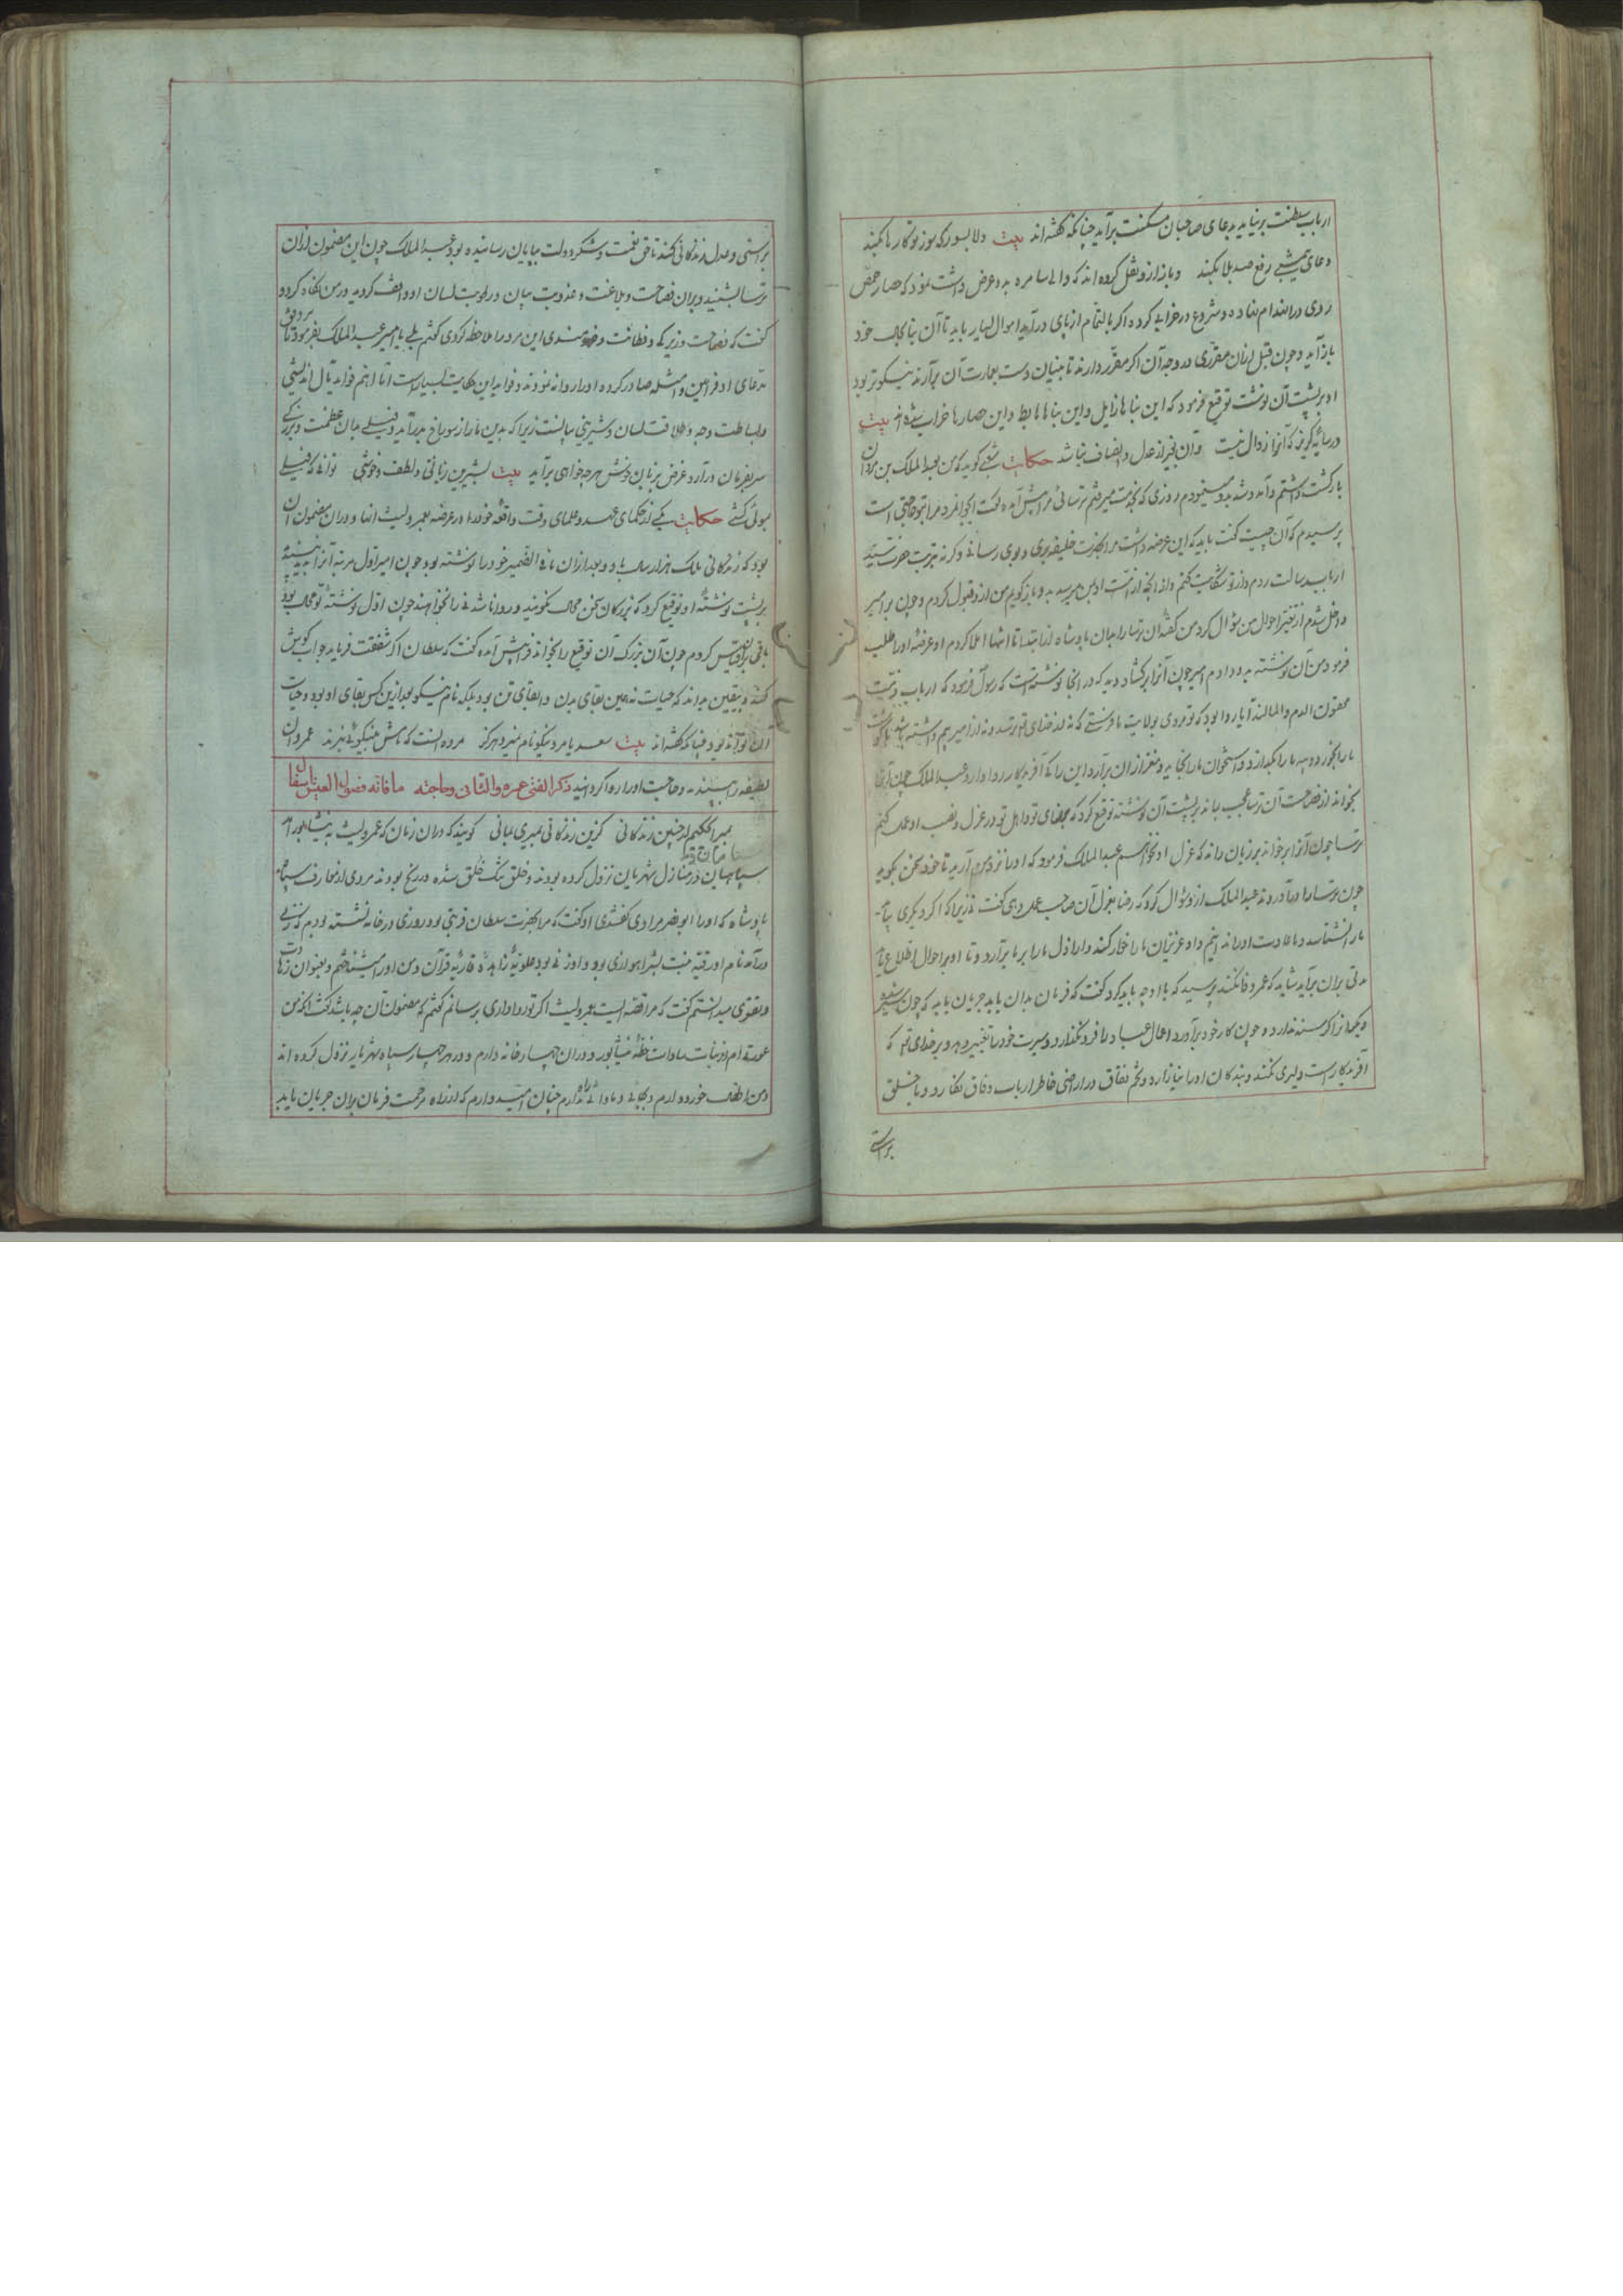 ارباب سلطنت برنیاید بدعای صاحبان مسکنت برآید چنانکه گفته‌اند بیت دلا بسوز که سوز تو کارها بکند
دعای نیمشبی رفع صد بلا بکند و باز ازو نقل کرده‌اند که والی سامره بدو عرض داشت نمود که حصار حمص
روی در انهدام نهاده و شروع در خراب کرده اگر بالتمام از پای درآید اموال بسیار باید تا آن بنا بحال خود
باز آید و چون قبل از آن مقرری در وجه آن اگر مقرر دارند تا بنیان دست بعمارت آن برآرند نیکوتر بود
او بر پشت آن نوشت توقیع فرمود که این بناها زایل و این بناها هابط و این حصارها خراب شده‌اند بیت
در سایه گریز که آنرا زوال نیست وآن بغیر از عدل و انصاف نباشد حکایت شعبی گوید که من بعبدالملک بن مروان
بازگشت داشتم و آمد و شد بدو مینمودم روزی که بخدمت میرفتم ترسائی مرا پیش آمد گفت ای جوانمرد مرا بتو حاجتی است
پرسیدم که آن چیست گفت باید که این عرضه داشت مرا بحضرت خلیفه بری و بوی رسانی وگرنه بتربت حضرت سید
ارباب رسالت روم و از تو شکایت کنم و از آنچه از امت او بمن میرسد بدو باز گویم من ازو قبول کردم و چون بر امیر
داخل شدم از تغیر احوال من سؤال کرد من گفتهٔ آن ترسا را بدان پادشاه از ابتدا تا انتها املا کردم او عرضهٔ او را طلب
فرمود من آن نوشته بدو دادم امیر چون آنرا برگشاد دید که در آنجا نوشته است که رسول فرمود که ارباب ذمت
محقون الدم والمالند آیا روا بود که تو مردی بولایت ما فرستی که نه از خدای تو ترسد و نه از امیر بیم داشته باشد تا گوشت
ما را بخورد و پیه ما را بگدازد و استخوان ما را بخاید و مغز از آن برآرد این را کی آفریدگار روا دارد عبدالملک چون آنرا
بخواند از فصاحت آن ترسا عجب بماند بر پشت آن نوشته توقیع کرد که برضای تو و اهل تو در عزل و نصب او عمل کنم
ترسا چون آنرا برخواند بر زبان راند که عزل او نخواهم عبدالملک فرمود که او را نزد من آرید تا خود سخن بگوید
چون ترسا را درآوردند عبدالملک ازو سؤال کرد که رضا بعزل آن صاحب عمل دهی گفت نی زیرا که اگر دیگری بیاید
ما را نشناسد و ما عادت او را ندانیم و او عزیزان ما را خوار کند و اراذل ما را بر ما برآرد و تا او بر احوال اطلاع یابد
مدتی بران برآید شاید که عمر وفا نکند پرسید که با او چه باید کرد گفت که فرمان بدان باید جریان یابد که چون سیر شده
و یکی را گرسنه ندارد و چون کار خود برآورد اعمال عباد را فرو نگذارد و سیرت خود را تغییر ندهد و بر خدای تعالی که
آفریدگار است دلیری نکند و بندگان او را نیازارد و تخم نفاق در اراضی خاطر ارباب وفاق نکارد و با خلق
براستی
براستی و عدل زندگانی کند تا حق نعمت و شکر دولت بپایان رسانیده بود عبدالملک چون این مضمون از آن
ترسا بشنید و بر آن فصاحت و بلاغت و عذوبت بیان و رطوبت لسان او واقف گردید در من نگاه کرد و
گفت که فصاحت و زیرکی و فطانت و خردمندی این مرد را ملاحظه کردی گفتم بلی یا امیر عبدالملک بفرمود تا بر وفق
مدعای او فرامین و امثله صادر کرده او را روانه نمودند و فواید این حکایت بسیار است اما اهم فواید مآل اندیشی
و انبساطت وجه و طلاقت لسان و شیرینی بیانست زیرا که بدین مار از سوراخ بدر آید و فیلی بدان عظمت و بزرگی
سر بفرمان درآرد و غرض بزبان خوش هر چه خواهی برآید بیت بشیرین زبانی و لطف و خوشی توانی که فیلی
بموئی کشی حکایت یکی از حکمای عهد و علمای وقت واقعهٔ خود را در عرضه بعمرو لیث انها و در آن مضمون آن
بود که زندگانی ملک هزار سال باد و بعد از آن ما فی الضمیر خود را نوشته بود چون امیر اول مرتبه آنرا بدید
بر پشت نوشتهٔ او توقیع کرد که بزرگان سخن محال نگویند و روانا شدنی را نخواهند چون اول نوشتهٔ تو محال بود
باقی برآن قیاس کردم چون آن بزرگ آن توقیع را بخواند فرا پیش آمده گفت که سلطان اگر شفقت فرماید جواب گویش
کند و بیقین بداند که حیات نه همین بقای بدن و ابقای تن بود بلکه نام نیکو بعد از این کس بقای او بود و حیات
آن تواند بود چنانکه گفته‌اند بیت سعدیا مرد نیکو نام نمیرد هرگز مرده آنست که نامش بنیکوئی نبرند عمرو آن
لطیفه را بپسندید و حاجت او را روا گردانید ذکر الفتی عمره الثانی وحاجته ما فاته فضول العیش اشغال
بمیر ای حکیم از چنین زندگانی کزین زندگانی بمیری بمانی گویند که در آن زمان که عمرو لیث به نیشابور آمد
سپاهیان در منازل شهریان نزول کرده بودند و خلق بتنگ خلق شده در رنج بودند مردی از معارف سپاه
پادشاه که او را ابونصر مرادی گفتندی او گفت که مرا بحضرت سلطان قربتی بود روزی در خانه نشسته بودم که زنی
درآمد نام او رقیه بنت بشر اهوازی بود و او زنی بود علویه زاهده قاریهٔ قرآن و من او را میشناختم و بعنوان زهادت
و تقوی میدانستم گفت که مرا قصه ایست بعمرو لیث اگر تو روا داری برسانم گفتم که مضمون آن چه باشد گفت آنکه من
عورتی ام از بنات سادات خطهٔ نیشابور و در آن چهار خانه دارم و در هر چهار سپاه شهریار نزول کرده‌اند
و من اطفال خورد دارم و بجائی و ماوائی راه ندارم چنان امید دارم که از راه مرحمت فرمان بران جریان یابد